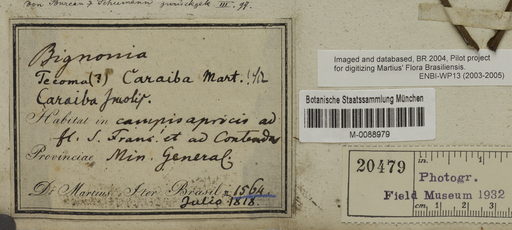 von Bureau & Schumann zurückgek III. 98.
Bignonia
Tecoma(?) Caraiba Mart.
Caraiba
Habitat in campis apricis ad
fl. S. Franc. et ad Contendas
Provinciae Min. General.
Dr. Martius Iter Brasil. n. 1564.
Julio 1818.
Imaged and databased, BR 2004, Pilot project
for digitizing Martius' Flora Brasiliensis.
ENBI-WP13 (2003-2005)
Botanische Staatssammlung München
M-0088979
20479
in. 1
Photogr.
Field Museum 1932
cm. 1 2 3